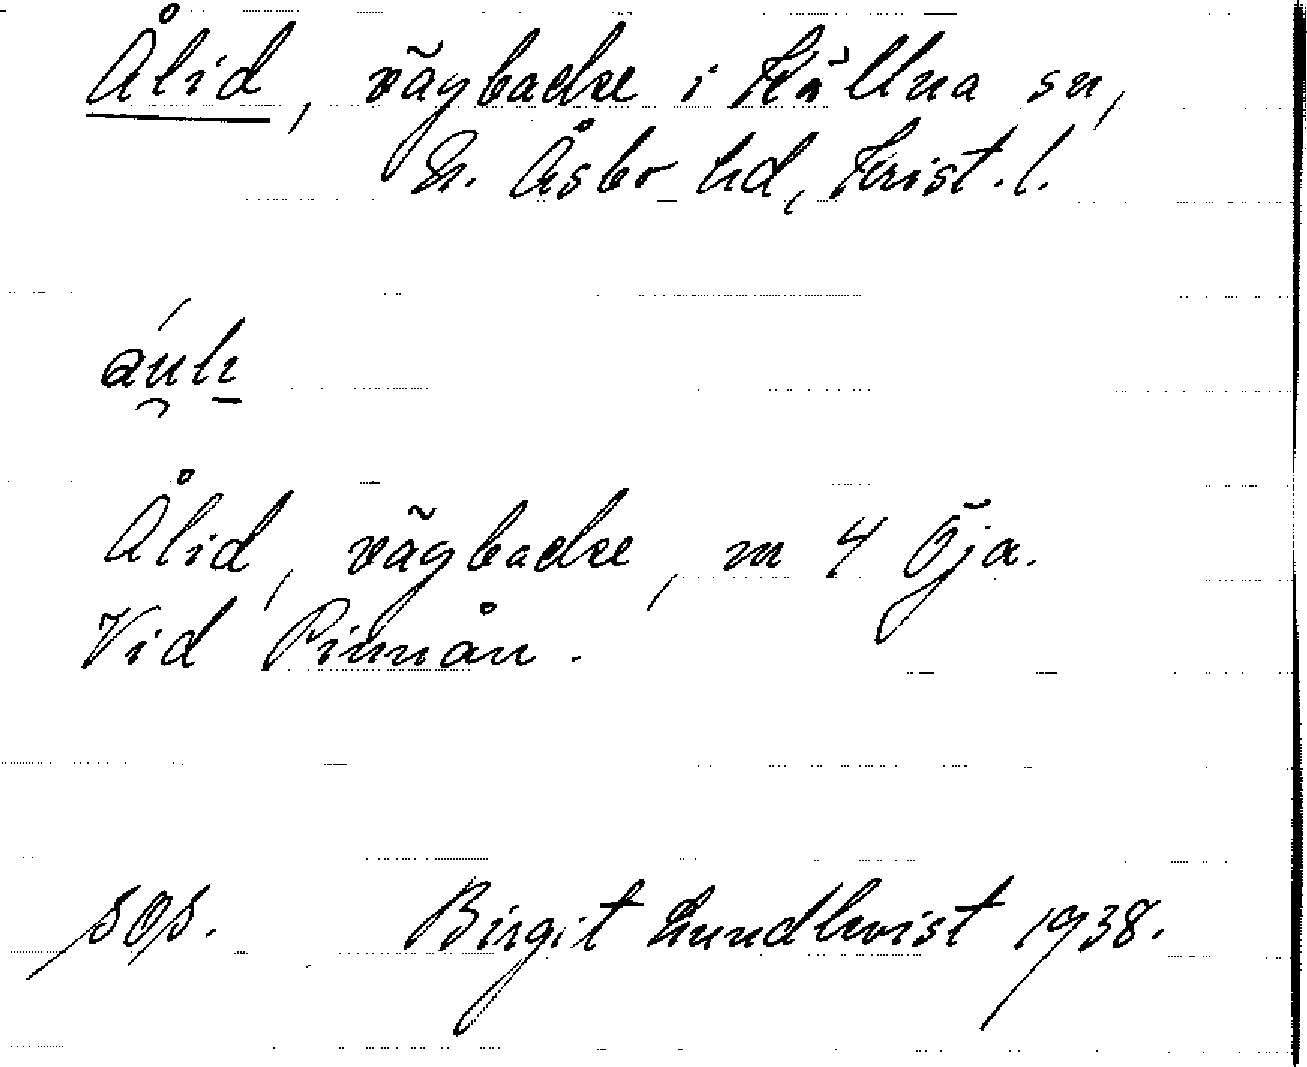 Ålid, vägbacke i Källna sn,
N. Åsbo hd, Krist. l.
Ålid, vägbacke, m 4 Öja.
Vid Pinnån.
Birgit Lundkvist 1938.